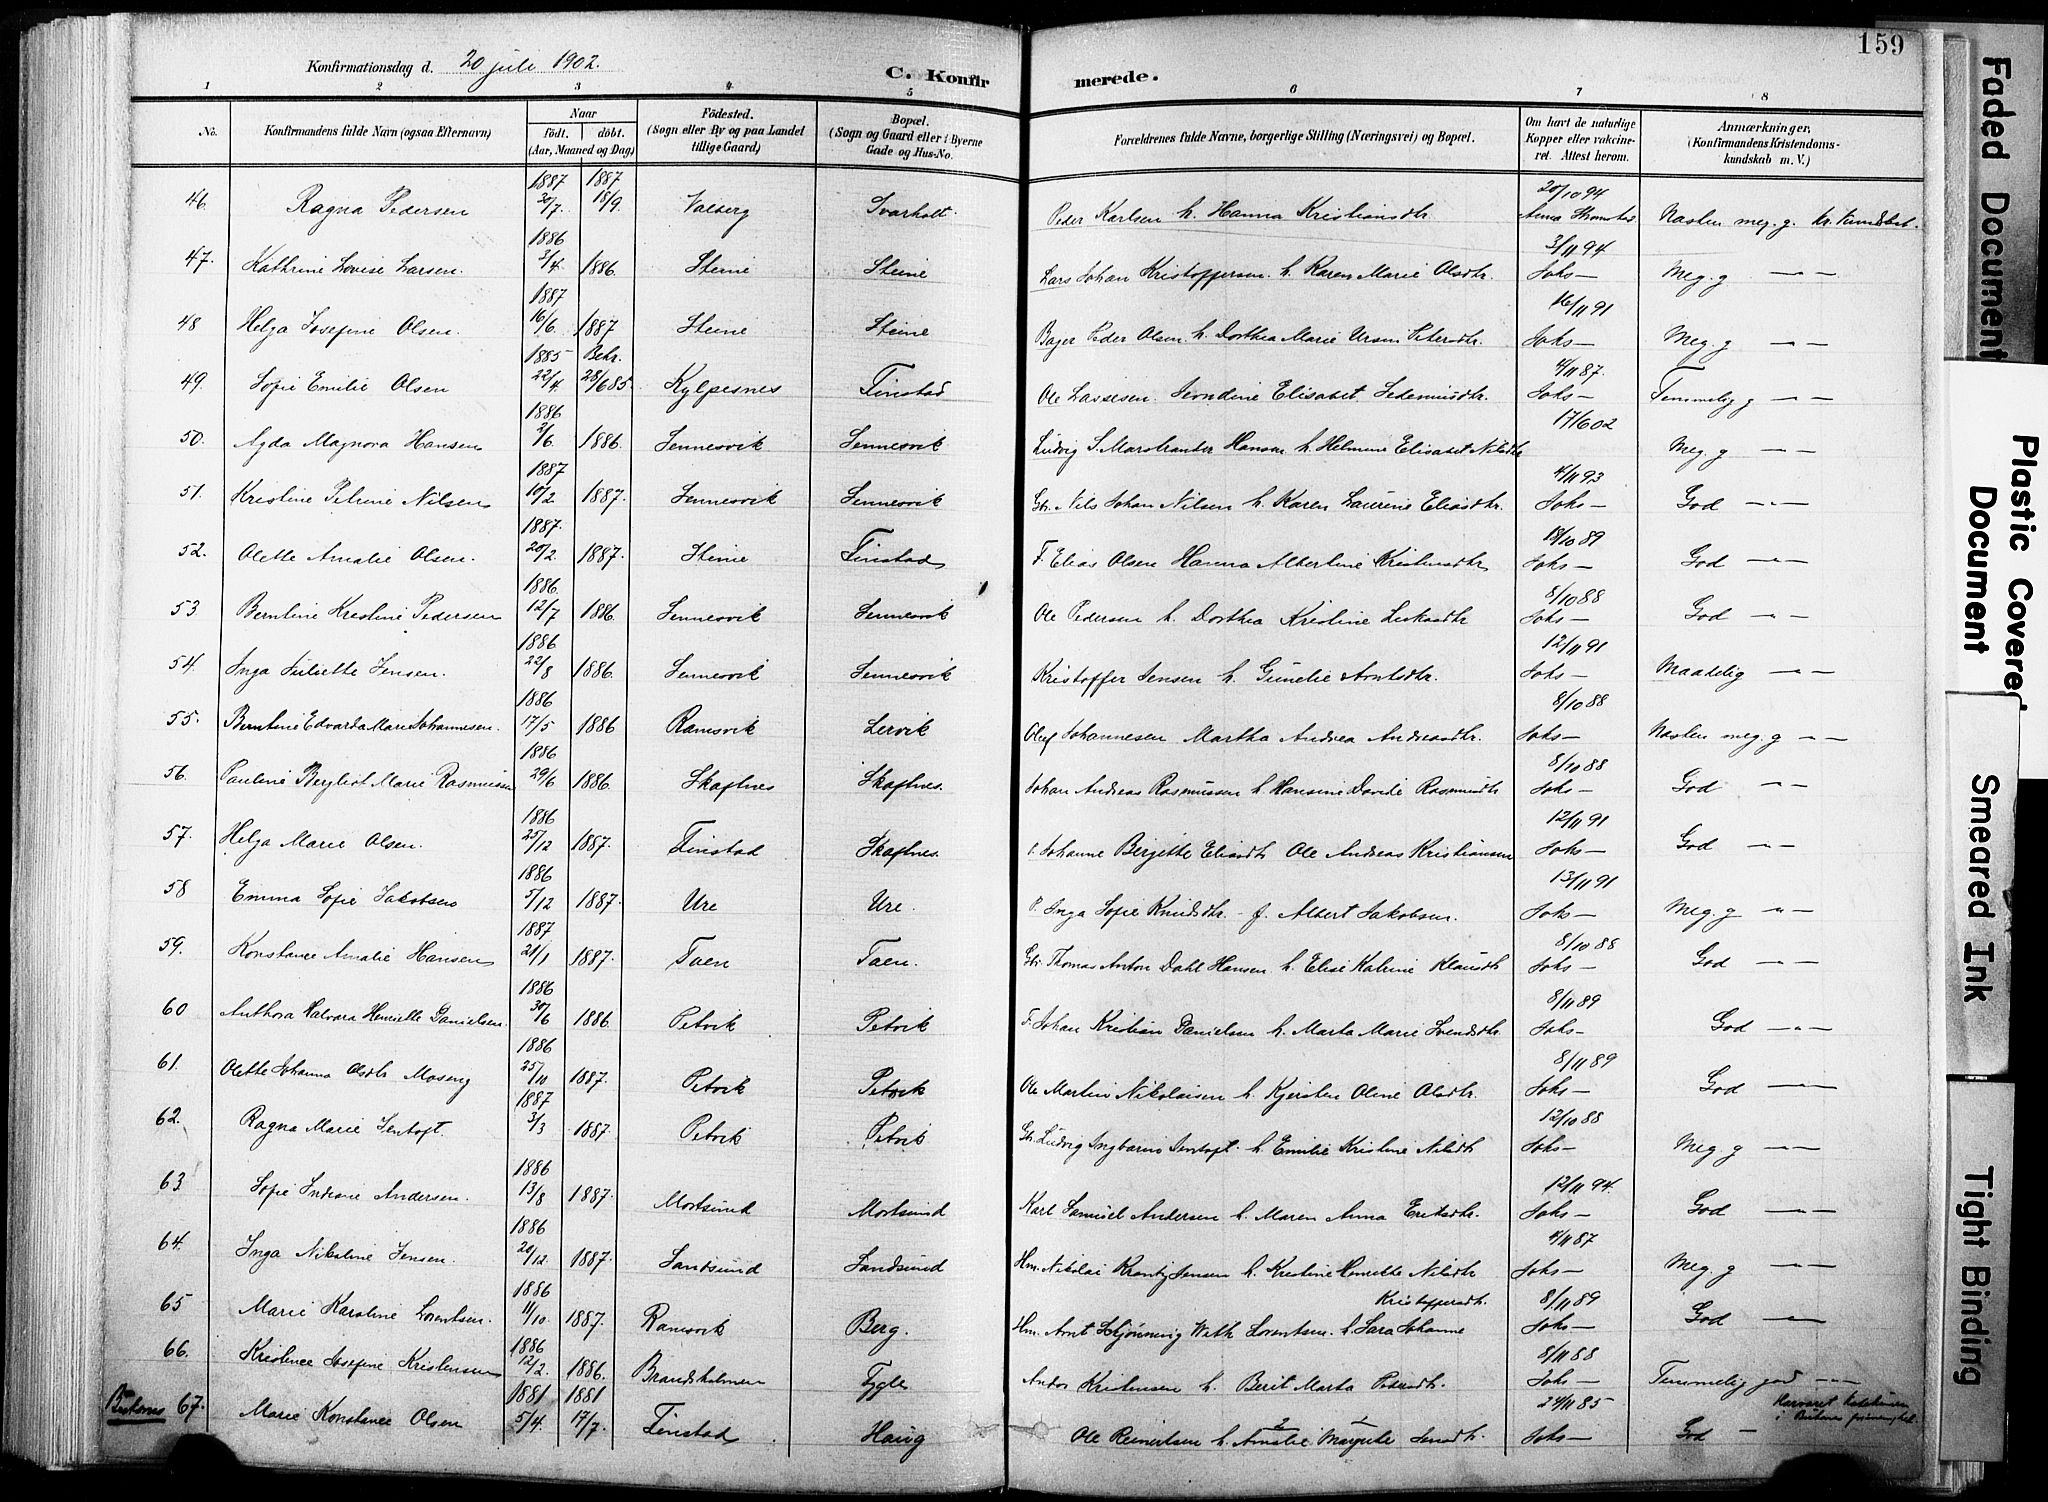 159
Konfirmationsdag d. 20 juli 1902.
C. Konfirmerede.
1 2 3 4 5 6 7 8
No.
Konfirmandens fulde Navn (ogsaa Efternavn)
Naar födt. döbt. (Aar, Maaned og Dag)
Födested. (Sogn eller By og paa Landet tillige Gaard)
Bopæl. (Sogn og Gaard eller i Byerne Gade og Hus-No.
Forældrenes fulde Navne, borgerlige Stilling (Næringsvei) og Bopæl.
Om havt de naturlige Kopper eller vakcineret. Attest herom.
Anmærkninger, (Konfirmandens Kristendomskundskab m. V.)
46. Ragna Pedersen 1887 20/7. 1887 18/9. Valberg Svarholt. Peder Karlsen h. Hanna Kristiansdtr. 20/10 94 Næsten meg. g. kr. kundskab.
47. Kathrine Lovise Larsen. 1886 3/4. 1886. Steine Steine Lars Johan Kristoffersen. h. Karen Marie Olsdtr. 3/11 94 Joks— Meg. g —"—
48 Helga Josefine Olsen. 1887 16/6. 1887 Steine Steine Peder Olsen. h. Dorthea Marie Ursin Petersdtr. 16/11 91 Joks— Meg. g —"—
49. Sofie Emilie Olsen 1885 22/4. Bekr. 28/6 85. Finstad Ole Lassesen. Elisabet 4/11 87. Joks— Temmelig g —"—
50. Agda Magnora Hansen 1886 2/6. 1886. Sennesvik Sennesvik Ludvig S. Hansen h. Helmine Elisabet Nilsdtr 17/6 02 Meg. g —"—
51. Kristine Petrine Nilsen 1887 10/2 1887. Sennesvik Sennesvik Gbr. Nils Johan Nilsen h. Karen Laurine Eliasdtr. 4/11 93 Joks— God —"—
52. Olette Amalie Olsen. 1887. 20/2. 1887. Steine Finstad F. Elias Olsen Hanna Albertine Kristensdtr 18/10 89 Joks— God —"—
53 Berntine Kristine Pedersen 1886. 12/7 1886. Sennesvik Sennesvik Ole Pedersen h. Dorthea Kristine Lukasdtr 8/10 88 Joks— God —"—
54. Inga Juliette Jensen. 1886 22/8 1886. Sennesvik Sennesvik Kristoffer Jensen h. Gunelie Arntsdtr. 12/11 91 Joks— Maadelig —"—
55. Berntine Edvarda Marie Johannesen. 1886 17/5 1886 Ramsvik Lervik Oluf Johannesen Martha Andrea Andreasdtr. 8/10 88 Joks— Næsten meg. g —"—
56. Pauline Bergliot Marie Rasmussen 1886 29/6 1886. Skaftnes Skaftnes. Johan Andreas Rasmussen h. Hansine Davide Rasmusdtr 8/10 88 Joks— God —"—
57. Helga Marie Olsen. 1886 25/12 1887. Finstad Skaftnes. Johanne Bergitte Eliasdtr Ole Andreas Kristiansen 12/11 91 Joks— God —"—
58 Emma Sofie Jakobsen 1886 5/12 1887. Ure Ure. P. Inga Sofie Knudsdtr - f. Albert Jakobsen. 13/11 91 Joks— Meg. g —"—
59. Konstance Amalie Hansen 1887 21/1 1887. Taen Taen. Gbr. Thomas Anton Dahl Hansen h. Elise Katrine Klausdtr 8/10 88 Joks— God —"—
60 Anthora Halvara Henriette Danielsen. 1886 30/6 1886. Petvik Petvik F. Johan Kristian Danielsen h. Marta Marie Svendsdtr. 8/11 89 Joks- God —"—
61. Olette Johanna Olsdtr Moseng 1886 25/10 1887. Petvik Petvik Ole Martin Nikolaisen h. Kjersten Oline Olsdtr. 8/11 89 Joks— God —"—
62. Ragna Marie Jentoft. 1887 3/3 1887. Petvik Petvik Gbr. Ludvig Jentoft. h. Emilie Kristine Nilsdtr 12/10 88 Joks— Meg. g —"—
63. Sofie Indiane Andersen. 1886 13/8 1887. Mortsund Mortsund Karl Samuel Andersen h. Maren Anna Eriksdtr. 12/11 94. Joks— God —"—
64. Inga Nikoline Jensen. 1886 20/12. 1887. Sandsund Sandsund Hm. Nikolai Jensen h. Kristine Henriette Nilsdtr 4/11 87 Joks— Meg. g —"—
65 Marie Karoline Lorentsen. 1886 11/10. 1887. Ramsvik Berg. Hm. Arnt Weth Lorentsen. h. Sara Johanne Kristoffersdtr. 8/11 89 Joks— God —"—
66. Kristence Josefine Kristensen 1886 12/2. 1886. Brandsholmen Tygle Andor Kristensen h. Berit Marta Pedersdtr. 8/11 88 Joks— Temmelig god —"—
Buksnes 67. Marie Konstance Olsen 1881 5/4. 1881 17/7. Finstad Haug Ole Reinertsen h. Amalie 2 Margrete 1 24/11 85 Joks— God —
Faded Document
Plastic Covered Document
Smeared Ink
Tight Binding